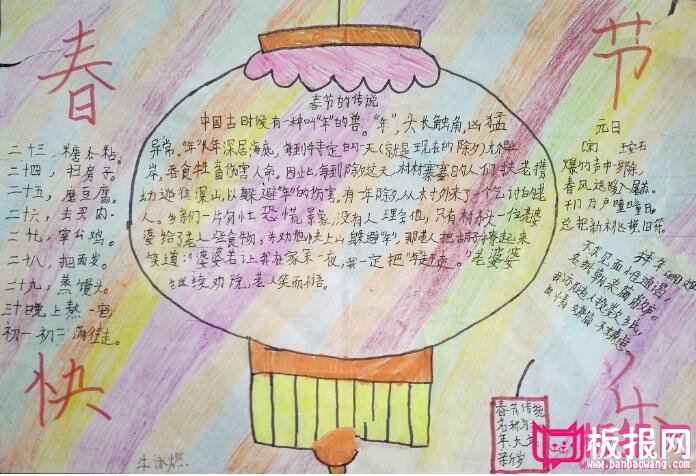 春
节
快
乐
二十三，糖瓜粘。
二十四，扫房子。
二十五，磨豆腐。
二十六，去买肉。
二十七，宰公鸡。
二十八，把面发。
二十九，蒸馒头。
三十晚上熬一宿
初一初二满街走。
春节的传说
中国古时候有一种叫“年”的兽。“年”，头长触角，凶猛
异常。“年”长年深居海底，每到特定的一天（就是现在的除夕）才爬上
岸，吞食牲畜伤害人命。因此，每到除夕这天，村村寨寨的人们扶老携
幼逃往深山，以躲避“年”的伤害。有一年除夕，从村外来了一个乞讨的老
人。乡亲们一片匆忙恐慌景象，没有人理会他，只有村东头一位老婆
婆给了老人些食物，并劝他快上山躲避“年”，那老人把胡子撩起来
笑道：“婆婆若让我在家呆一夜，我一定把“年”赶走。”老婆婆
继续劝说，老人笑而不语。
元日
（宋） 王安石
爆竹声中一岁除，
春风送暖入屠苏。
千门万户曈曈日，
总把新桃换旧符。
拜年
不求见面惟通谒，
名纸朝来满敝庐。
我亦随人投数纸，
春节传统
名称
年大
牛泳燃
板报网
www.banbaowang.com